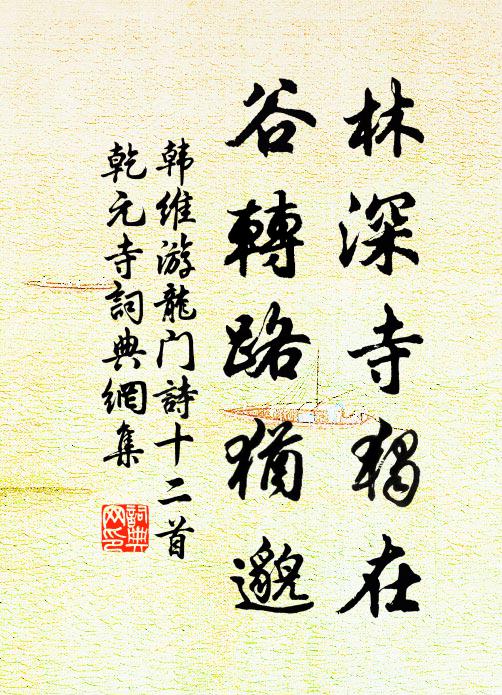 林深寺獨在
谷轉路猶邈
韩維游龍门詩十二首
乾元寺詞典網集
詞典网印